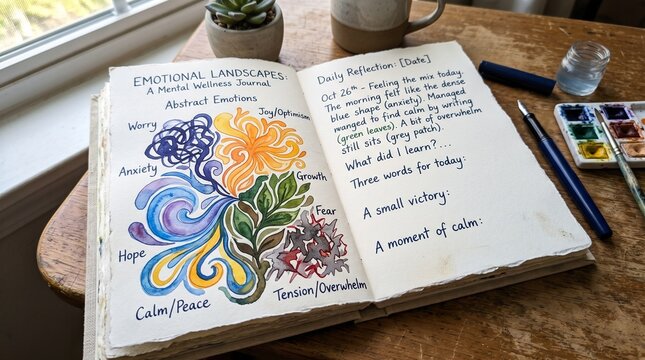 EMOTIONAL LANDSCAPES:
A Mental Wellness Journal
Abstract Emotions
Worry
Joy/Optimism
Anxiety
Growth
Fear
Hope
Calm/Peace
Tension/Overwhelm
Daily Reflection: [Date]
Oct 26th - Feeling the mix today.
The morning felt like the dense
blue shape (anxiety). Managed
wanged to find calm by writing
(green leaves). A bit of overwhelm
still sits (grey patch).
What did I learn?...
Three words for today:
A small victory:
A moment of calm: